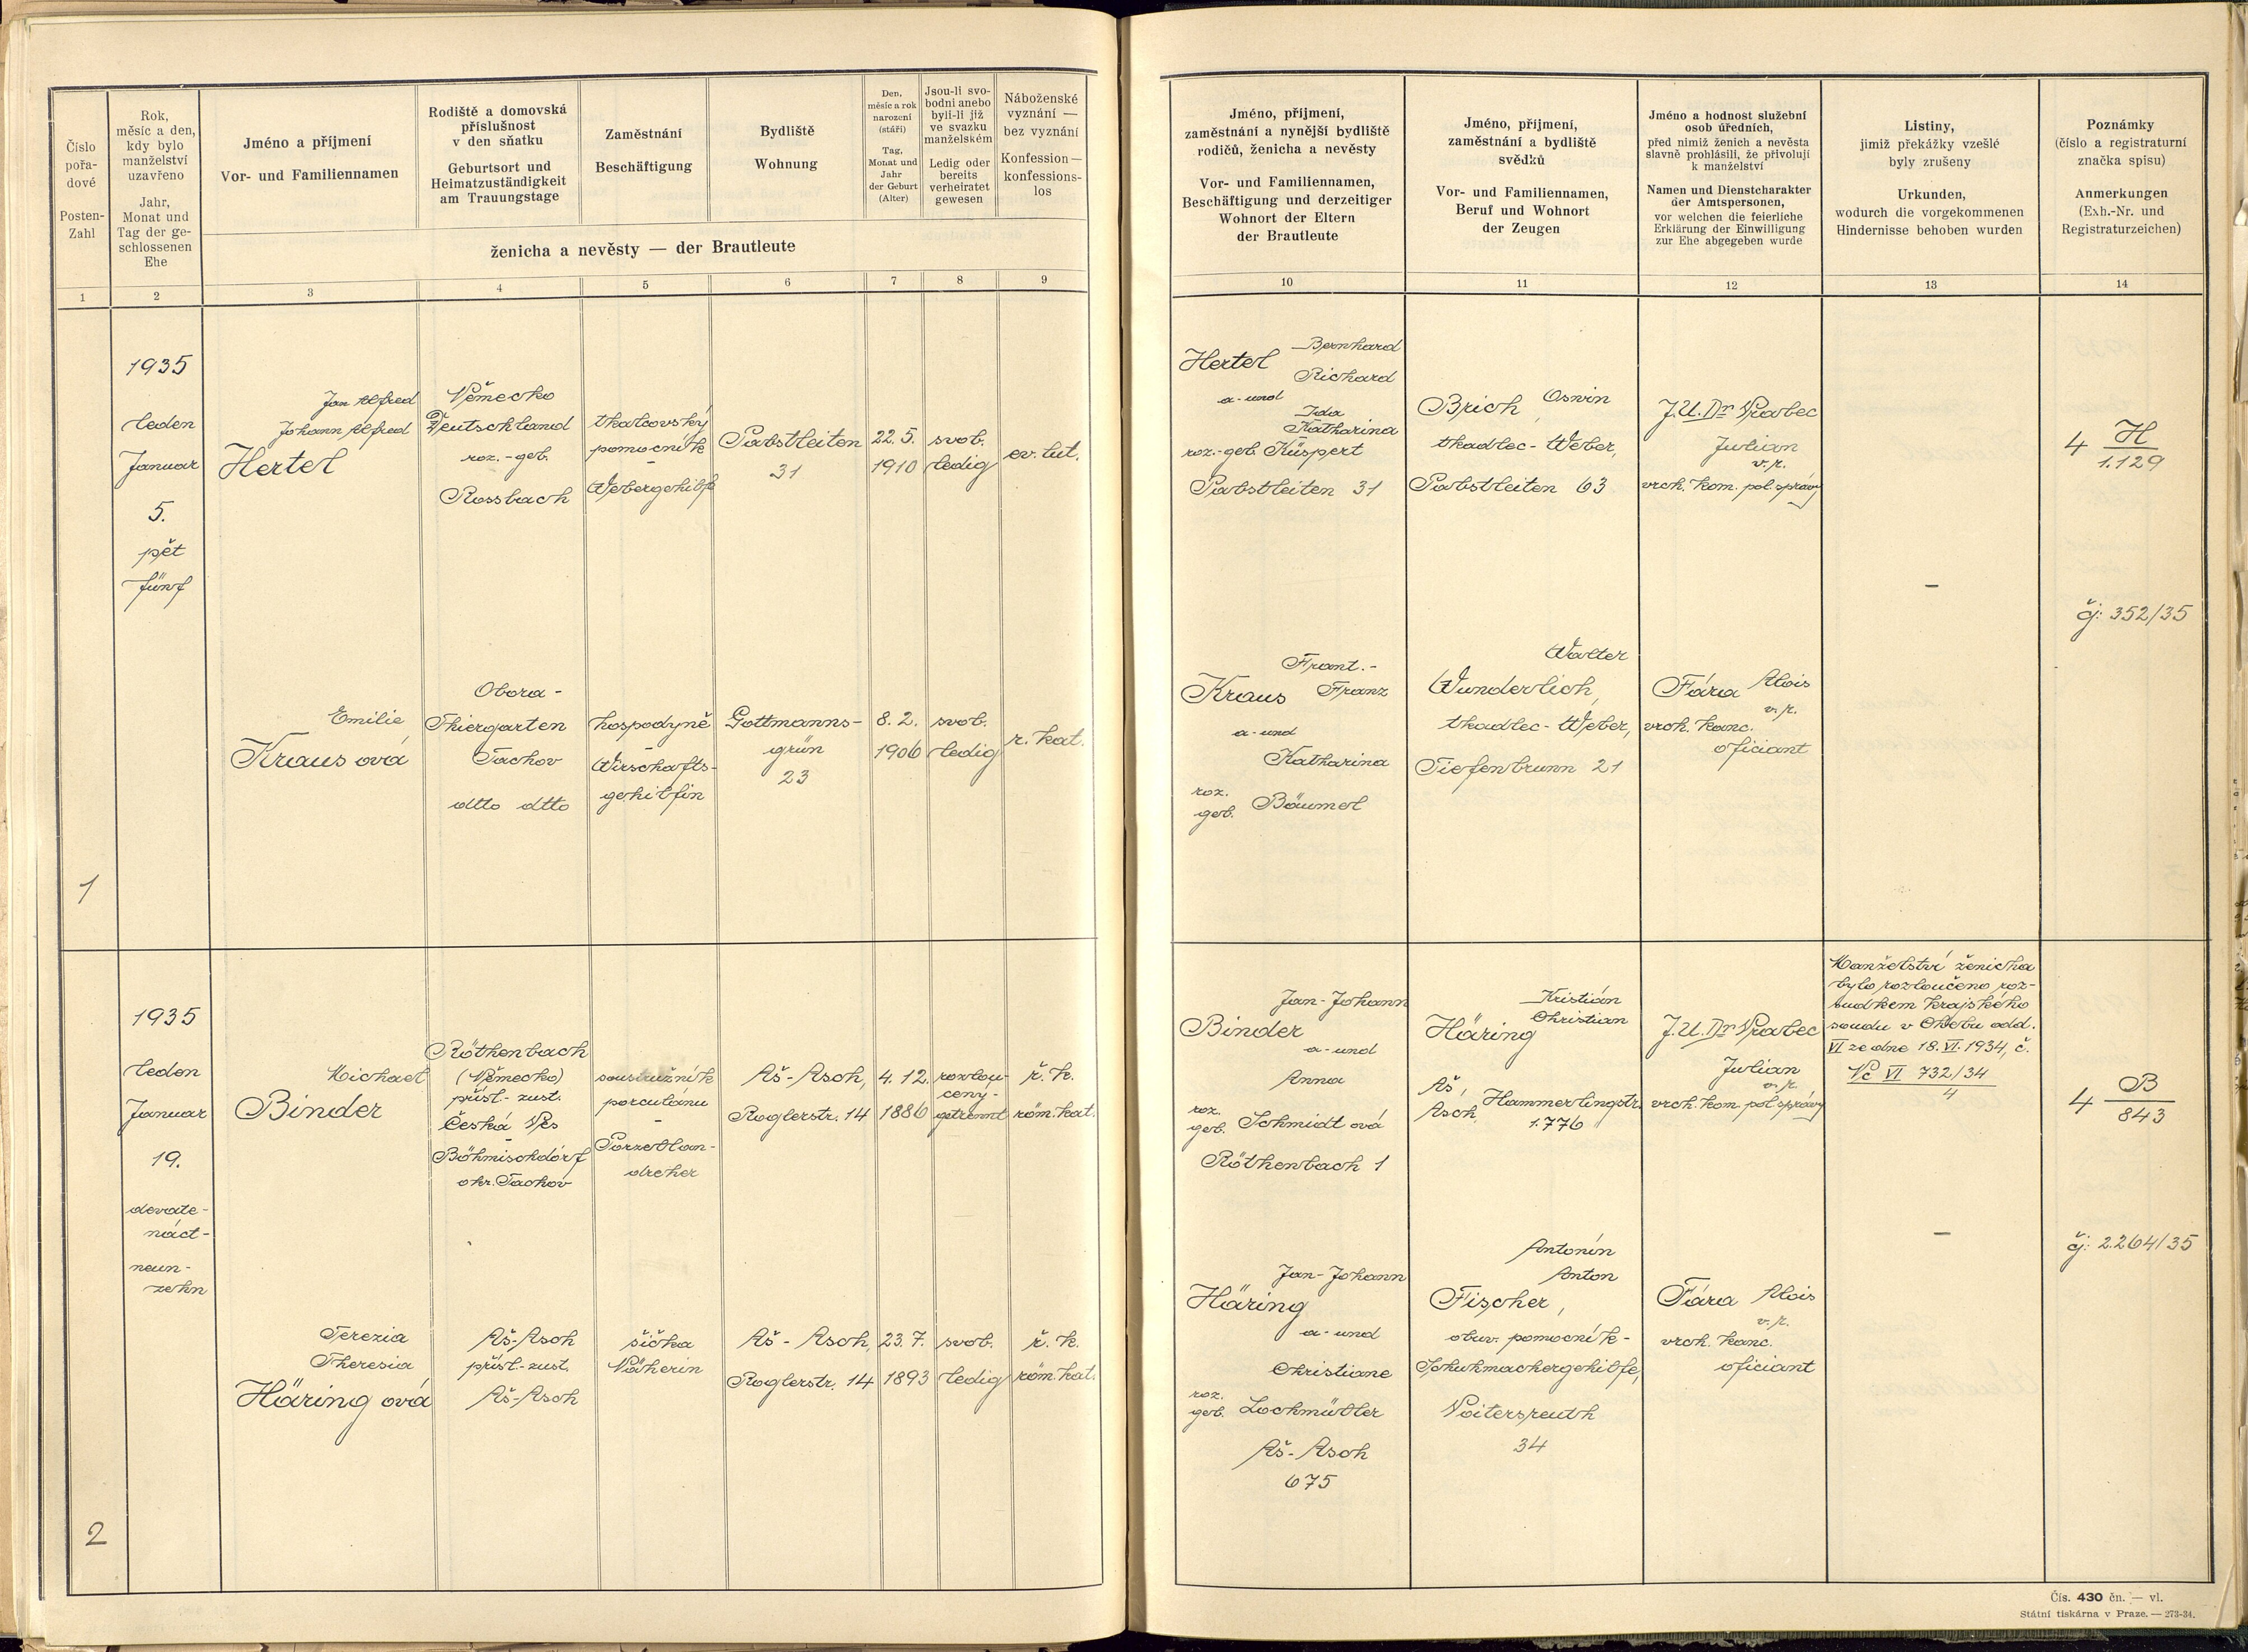 Číslo
pořa-
dové
Posten-
Zahl
1
Rok,
měsíc a den,
kdy bylo
manželství
uzavřeno
Jahr,
Monat und
Tag der ge-
schlossenen
Ehe
2
Jméno a příjmení
Vor- und Familiennamen
3
Rodiště a domovská
příslušnost
v den sňatku
Geburtsort und
Heimatzuständigkeit
am Trauungstage
4
Zaměstnání
Beschäftigung
5
Bydliště
Wohnung
6
Den,
měsíc a rok
narození
(stáří)
Tag,
Monat und
Jahr
der Geburt
(Alter)
7
Jsou-li svo-
bodni anebo
byli-li již
ve svazku
manželském
Ledig oder
bereits
verheiratet
gewesen
8
Náboženské
vyznání —
bez vyznání
Konfession —
konfessions-
los
9
ženicha a nevěsty — der Brautleute
Jméno, příjmení,
zaměstnání a nynější bydliště
rodičů, ženicha a nevěsty
Vor- und Familiennamen,
Beschäftigung und derzeitiger
Wohnort der Eltern
der Brautleute
10
Jméno, příjmení,
zaměstnání a bydliště
svědků
Vor- und Familiennamen,
Beruf und Wohnort
der Zeugen
11
Jméno a hodnost služební
osob úředních,
před nimiž ženich a nevěsta
slavně prohlásili, že přivolují
k manželství
Namen und Dienstcharakter
der Amtspersonen,
vor welchen die feierliche
Erklärung der Einwilligung
zur Ehe abgegeben wurde
12
Listiny,
jimiž překážky vzešlé
byly zrušeny
Urkunden,
wodurch die vorgekommenen
Hindernisse behoben wurden
13
Poznámky
(číslo a registraturní
značka spisu)
Anmerkungen
(Exh.-Nr. und
Registraturzeichen)
14
1
1935
leden
Januar
5.
pět
fünf
Jan Alfred
Johann Alfred
Hertel
Německo
Deutschland
roz.-geb.
Rossbach
tkalcovský
pomocník
-
Webergehilfe
Pabstleiten
31
22.5.
1910
svob.
ledig
ev. lut.
Bernhard
Hertel
Richard
a-und
Ida
Katharina
roz.-geb. Küspert
Pabstleiten 31
Brich, Oswin
tkadlec-Weber,
Pabstleiten 63
J.U.Dr Vrabec
Julian
v.r.
vrch. kom. pol. správy
—
4 H
1.129
čj: 352/35
Emilie
Krausová
Obora-
Thiergarten
Tachov
dtto dtto
hospodyně
-
Wirschafts-
gehilfin
Gottmanns-
grün
23
8.2.
1906
svob.
ledig
ř. kat.
Frant.-
Kraus Franz
a-und
Katharina
roz.
geb. Bäumel
Walter
Wunderlich,
tkadlec-Weber,
Tiefenbrunn 21
Fára Alois
v.r.
vrch. kanc.
oficiant
2
1935
leden
Januar
19.
devate-
náct-
neun-
zehn
Michael
Binder
Röthenbach
(Německo)
přísl.-zust.
Česká Ves
-
Böhmischdorf
okr. Tachov
soustružník
porculánu
-
Porzellan-
dreher
Aš-Asch,
Roglerstr. 14
4.12.
1886
rozlou-
čený-
getrennt
ř. k.
röm. kat.
Jan-Johann
Binder
a-und
Anna
roz.
geb. Schmidtová
Röthenbach 1
Kristián
Christian
Häring
Aš,
Asch, Hammerlingstr.
1.776
J.U.Dr Vrabec
Julian
v.r.
vrch. kom. pol. správy
Manželství ženicha
bylo rozloučeno roz-
sudkem krajského
soudu v Chebu odd.
VI ze dne 18.VI.1934, č.
Nc VI 732/34
4
4 B
843
—
čj: 2.264/35
Terezia
Theresia
Häringová
Aš-Asch
přísl.-zust.
Aš-Asch
šička
Näherin
Aš-Asch,
Roglerstr. 14
23.7.
1893
svob.
ledig
ř. k.
röm. kat.
Jan-Johann
Häring
a-und
Christiane
roz.
geb. Lochmüller
Aš-Asch
675
Antonín
Anton
Fischer,
obuv. pomocník-
Schuhmachergehilfe,
Voitersreuth
34
Fára Alois
v.r.
vrch. kanc.
oficiant
Čís. 430 čn. — vl.
Státní tiskárna v Praze. — 273-34.